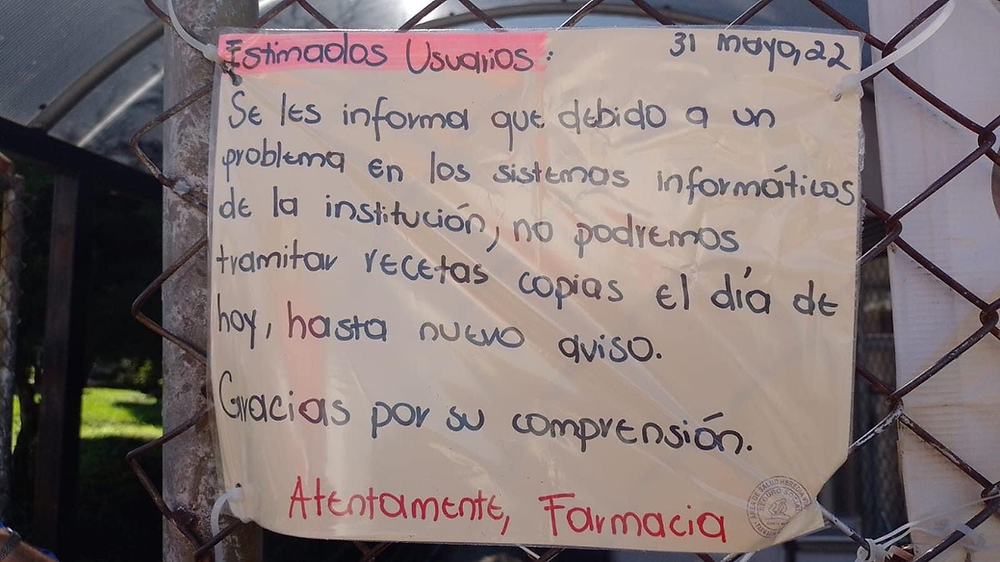 Estimados Usuarios:
31 mayo, 22
Se les informa que debido a un
problema en los sistemas informáticos
de la institución, no podremos
tramitar recetas copias el día de
hoy, hasta nuevo aviso.
Gracias por su comprensión.
Atentamente, Farmacia
SEGURO SOCIAL